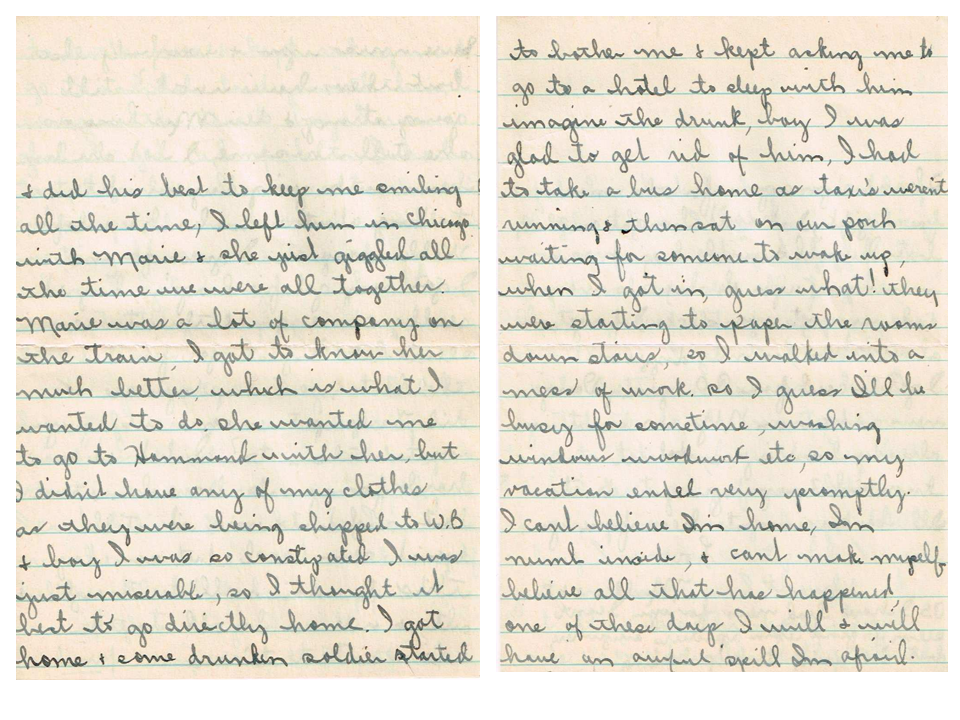 & did his best to keep me smiling
all the time, I left him in Chicago
with Marie & she just giggled all
the time we were all together.
Marie was a lot of company on
the train, I got to know her
much better, which is what I
wanted to do, she wanted me
to go to Hammond with her, but
I didn't have any of my clothes
as they were being shipped to W.B
& boy I was so constipated I was
just miserable, so I thought it
best to go directly home. I got
home & some drunken soldier started
to bother me & kept asking me to
go to a hotel to sleep with him
imagine the drunk, boy I was
glad to get rid of him, I had
to take a bus home as taxi's weren't
running & then sat on our porch
waiting for someone to wake up,
when I got in, guess what! they
were starting to paper the rooms
down stairs, so I walked into a
mess of work. so I guess I'll be
busy for sometime, washing
windows woodwork etc, so my
vacation ended very promptly.
I cant believe Im home, Im
numb inside, & cant make myself
believe all that has happened,
one of these days I will & will
have an awful spill Im afraid.